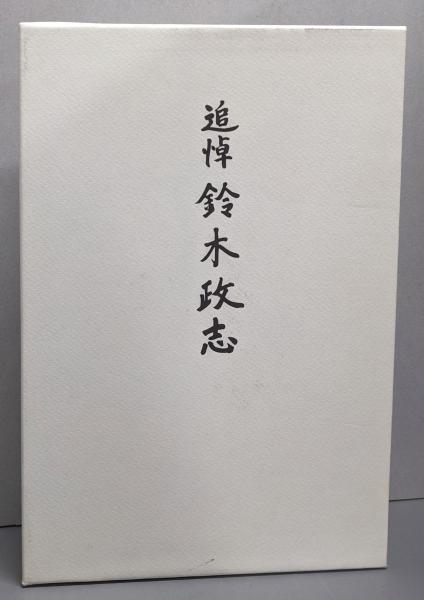 追悼 鈴木政志